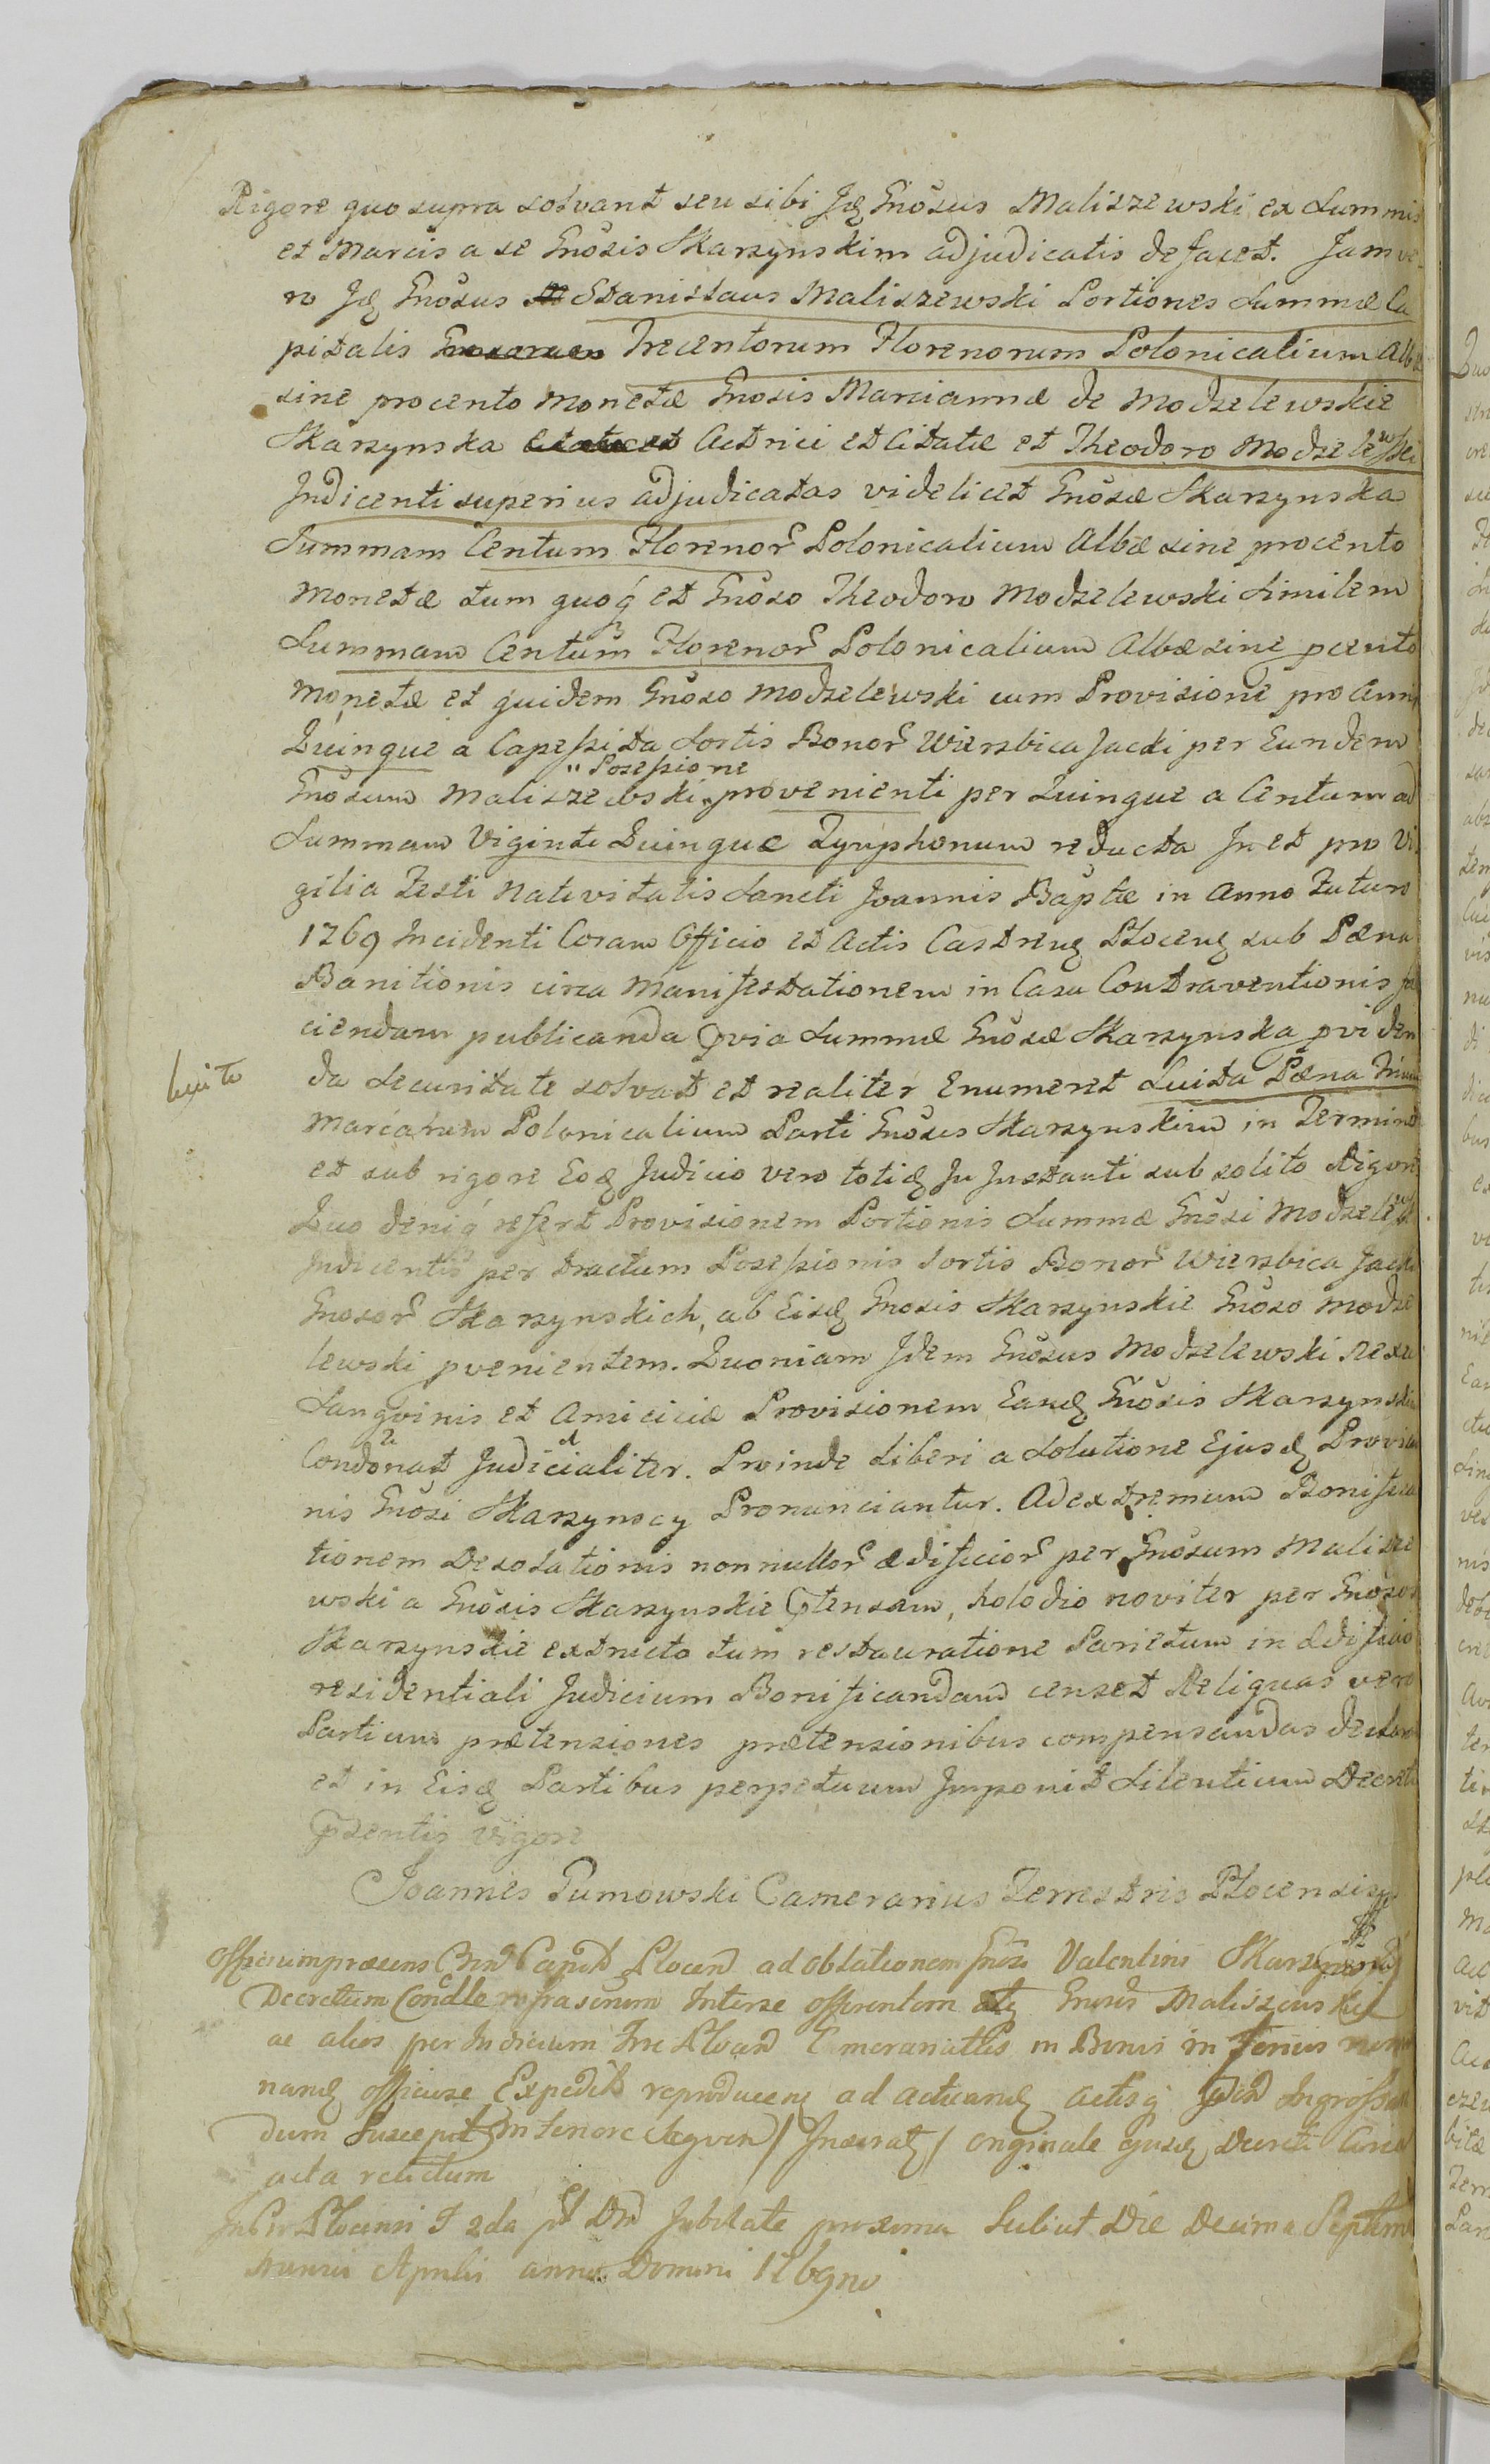 Rigore quo supra solvant seu sibi Jdē Gnōsus Maliszewski ex Summis
et Marcis a se Gnōsis Skarzynskim adjudicatis defacet. Jam ve
ro Jdē Gnōsus Stanislaus Maliszewski Portiones Summæ Ca
pitalis Trecentorum Florenorum Polonicalium Albæ
sine procento Monetæ Gnosis Mariannæ de Modzelewskie
Skarzynska Actrici et Citatæ et Theodoro Modzelewski
Indicenti superius adjudicatas videlicet Gnōsæ Skarzynska
Summam Centum Florenor Polonicalium Albæ sine procento
Monetæ tum quoq et Gnōso Theodoro Modzelewski Similem
Summam Centum Florenor Polonicalium Albæ sine pcento
Monetæ et quidem Gnōso Modzelewski cum Provisione pro Annis
Quinque a Capessita Sortis Bonor Wierzbica Jacki per Eundem
" Posessione
Gnōsum Maliszewski " provenienti per Quinque a Centum ad
Summam Viginti Quinque Tynphonum reducta In et pro Vi
gilia Festi Nativitatis Sancti Joannis Baptæ in Anno Futuro
1769 Incidenti Coram Officio et Actis Castrenȝ Plocenȝ sub Pæna
Banitionis circa Manifestationem in Casu Contraventionis fa
ciendam publicanda Qvia Summæ Gnōsæ Skarzynska pviden
da Securitate solvat et realiter Enumeret Luita Pæna Trium
luito
Marcarum Polonicalium Parti Gnōsis Skarzynskim in Termino
et sub rigore Eoȝ Judicio vero totiȝ In Instanti sub solito Rigore
Quo deniq refert Provisionem Portionis Summæ Gnōsi Modzelewski
Indicentis per tractum Posessionis Sortis Bonor Wierzbica Jacki
Gnosor Skarzynskich, ab Eisȝ Gnosis Skarzynskie Gnōso Modze
lewski pvenientem. Quoniam Idem Gnōsus Modzelewski nexu
Sangvinis et Amiciciæ Provisionem Eanȝ Gnōsis Skarzynskie
Condonat Judicialiter. Proinde Liberi a Solutione Ejusȝ Provisio
nis Gnōsi Skarzynscy Pronunciantur. Ad extremum Bonifica
tionem Desolationis nonnullor ædificior per Gnōsum Malisze
wski a Gnōsis Skarzynskie Ptensam, holodio noviter per Gnōsos
Skarzynskie extructo tum restauratione Parietum in Ædificio
residentiali Judicium Bonificandam censet Reliquas vero
Partium prætensiones prætensionibus compensandas declarat
et in Eisȝ Partibus perpetuum Imponit Silentium Decreti
Psentis Vigore
Joannes Tumowski Camerarius Terrestris Plocensis
Officium præsens Capit Plocen ad oblationem Gnōsi Valentini Skarzynski
Decretum Condle infrascrium Interse offerentem Gnosis Maliszewskie
ac alios per Judicium in Bonis in
nanȝ officiose Expedit reproducens ad acticanȝ actisq Ingrossan
dum Suscepit In tenore seqven / Inseratȝ / originale ejusȝ Decreti Circa
acta relictum
Plocensi F 2da pt Dn Jubilate proxima Scilicet Die Decima Septima
Mensis Aprilis anno Domini 1769no